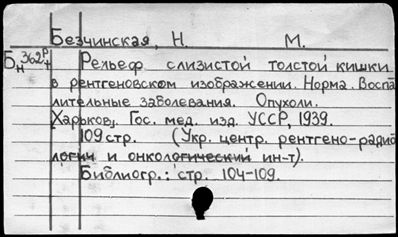 Безчинская, Н. М.
Бн 362Р+ Рельеф слизистой толстой кишки
в рентгеновском изображении. Норма. Воспа-
лительные заболевания. Опухоли.
Харьков, Гос. мед. изд. УССР, 1939.
109 стр. (Укр. центр. рентгено-радио
логич и онкологический ин-т).
Библиогр.: стр. 104-109.